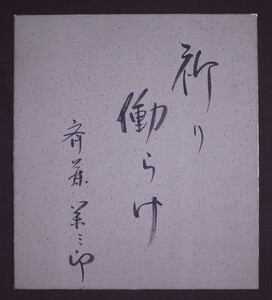 祈り
働らけ
斉藤美三郎